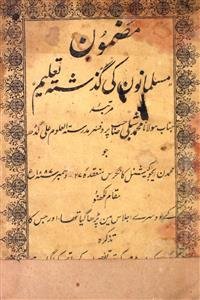 مضمون
مسلمانون کی گذشتہ تعلیم
مرتبہ
جناب مولانا محمد شبلی صاحب پروفیسر مدرسۃ العلوم علی گڈھ
جو
محمدن ایجوکیشنل کانگریس منعقدہ ۲۷ دسمبر ۱۸۸۷ع
مقام لکھنؤ
کے دوسرے اجلاس مین پڑھا گیا تھا اور جس کا
تذکرہ